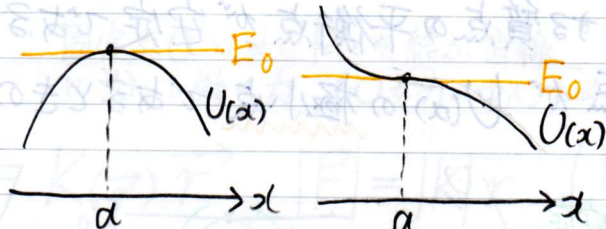 E₀
U(x)
a
x
E₀
U(x)
a
x